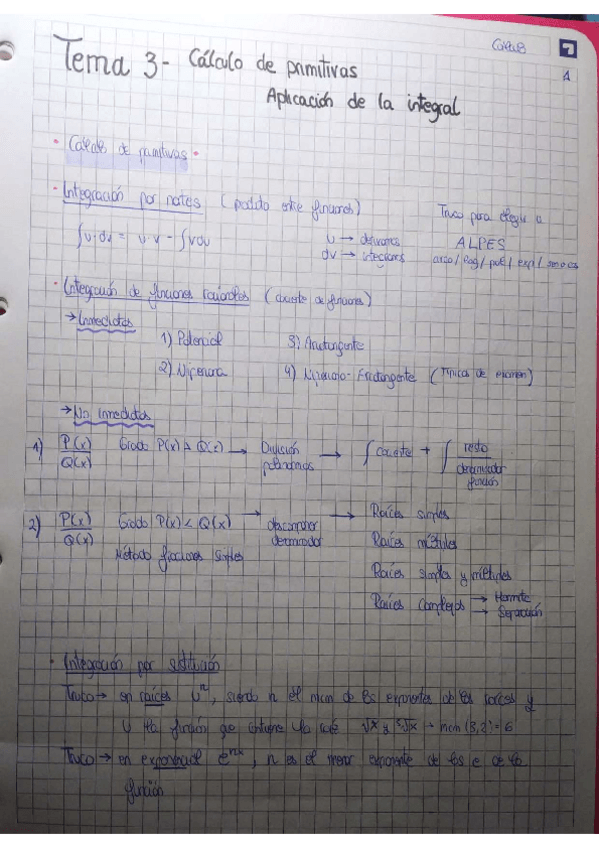 Tema 3- Cálculo de primitivas
Aplicación de la integral
1
• Cálculo de primitivas •
• Integración por partes (producto entre funciones)
Truco para elegir u
∫u·dv = u·v - ∫vdu
u → derivamos
ALPES
dv → integramos
arco/log/pol/exp/sen o cos
• Integración de funciones racionales (cociente de funciones)
→ Inmediatas
1) Potencial
3) Arcotangente
2) Neperiana
4) Neperiano-Arcotangente (Típicas de examen)
→ No inmediatas
1) P(x)/Q(x) Grado P(x) ≥ Q(x) → División polinomios → ∫cociente + ∫ resto/denominador función
2) P(x)/Q(x) Grado P(x) < Q(x) → descomponer denominador → Raíces simples
Raíces múltiples
Método fracciones simples
Raíces simples y múltiples
Raíces complejas → Hermite
→ Separación
• Integración por sustitución
Truco → en raíces uⁿ, siendo n el mcm de los exponentes de las raíces y
u la función que contiene la raíz √x y ³√x → mcm (3,2) = 6
Truco → en exponencial eⁿˣ, n es el menor exponente de los e de la
función